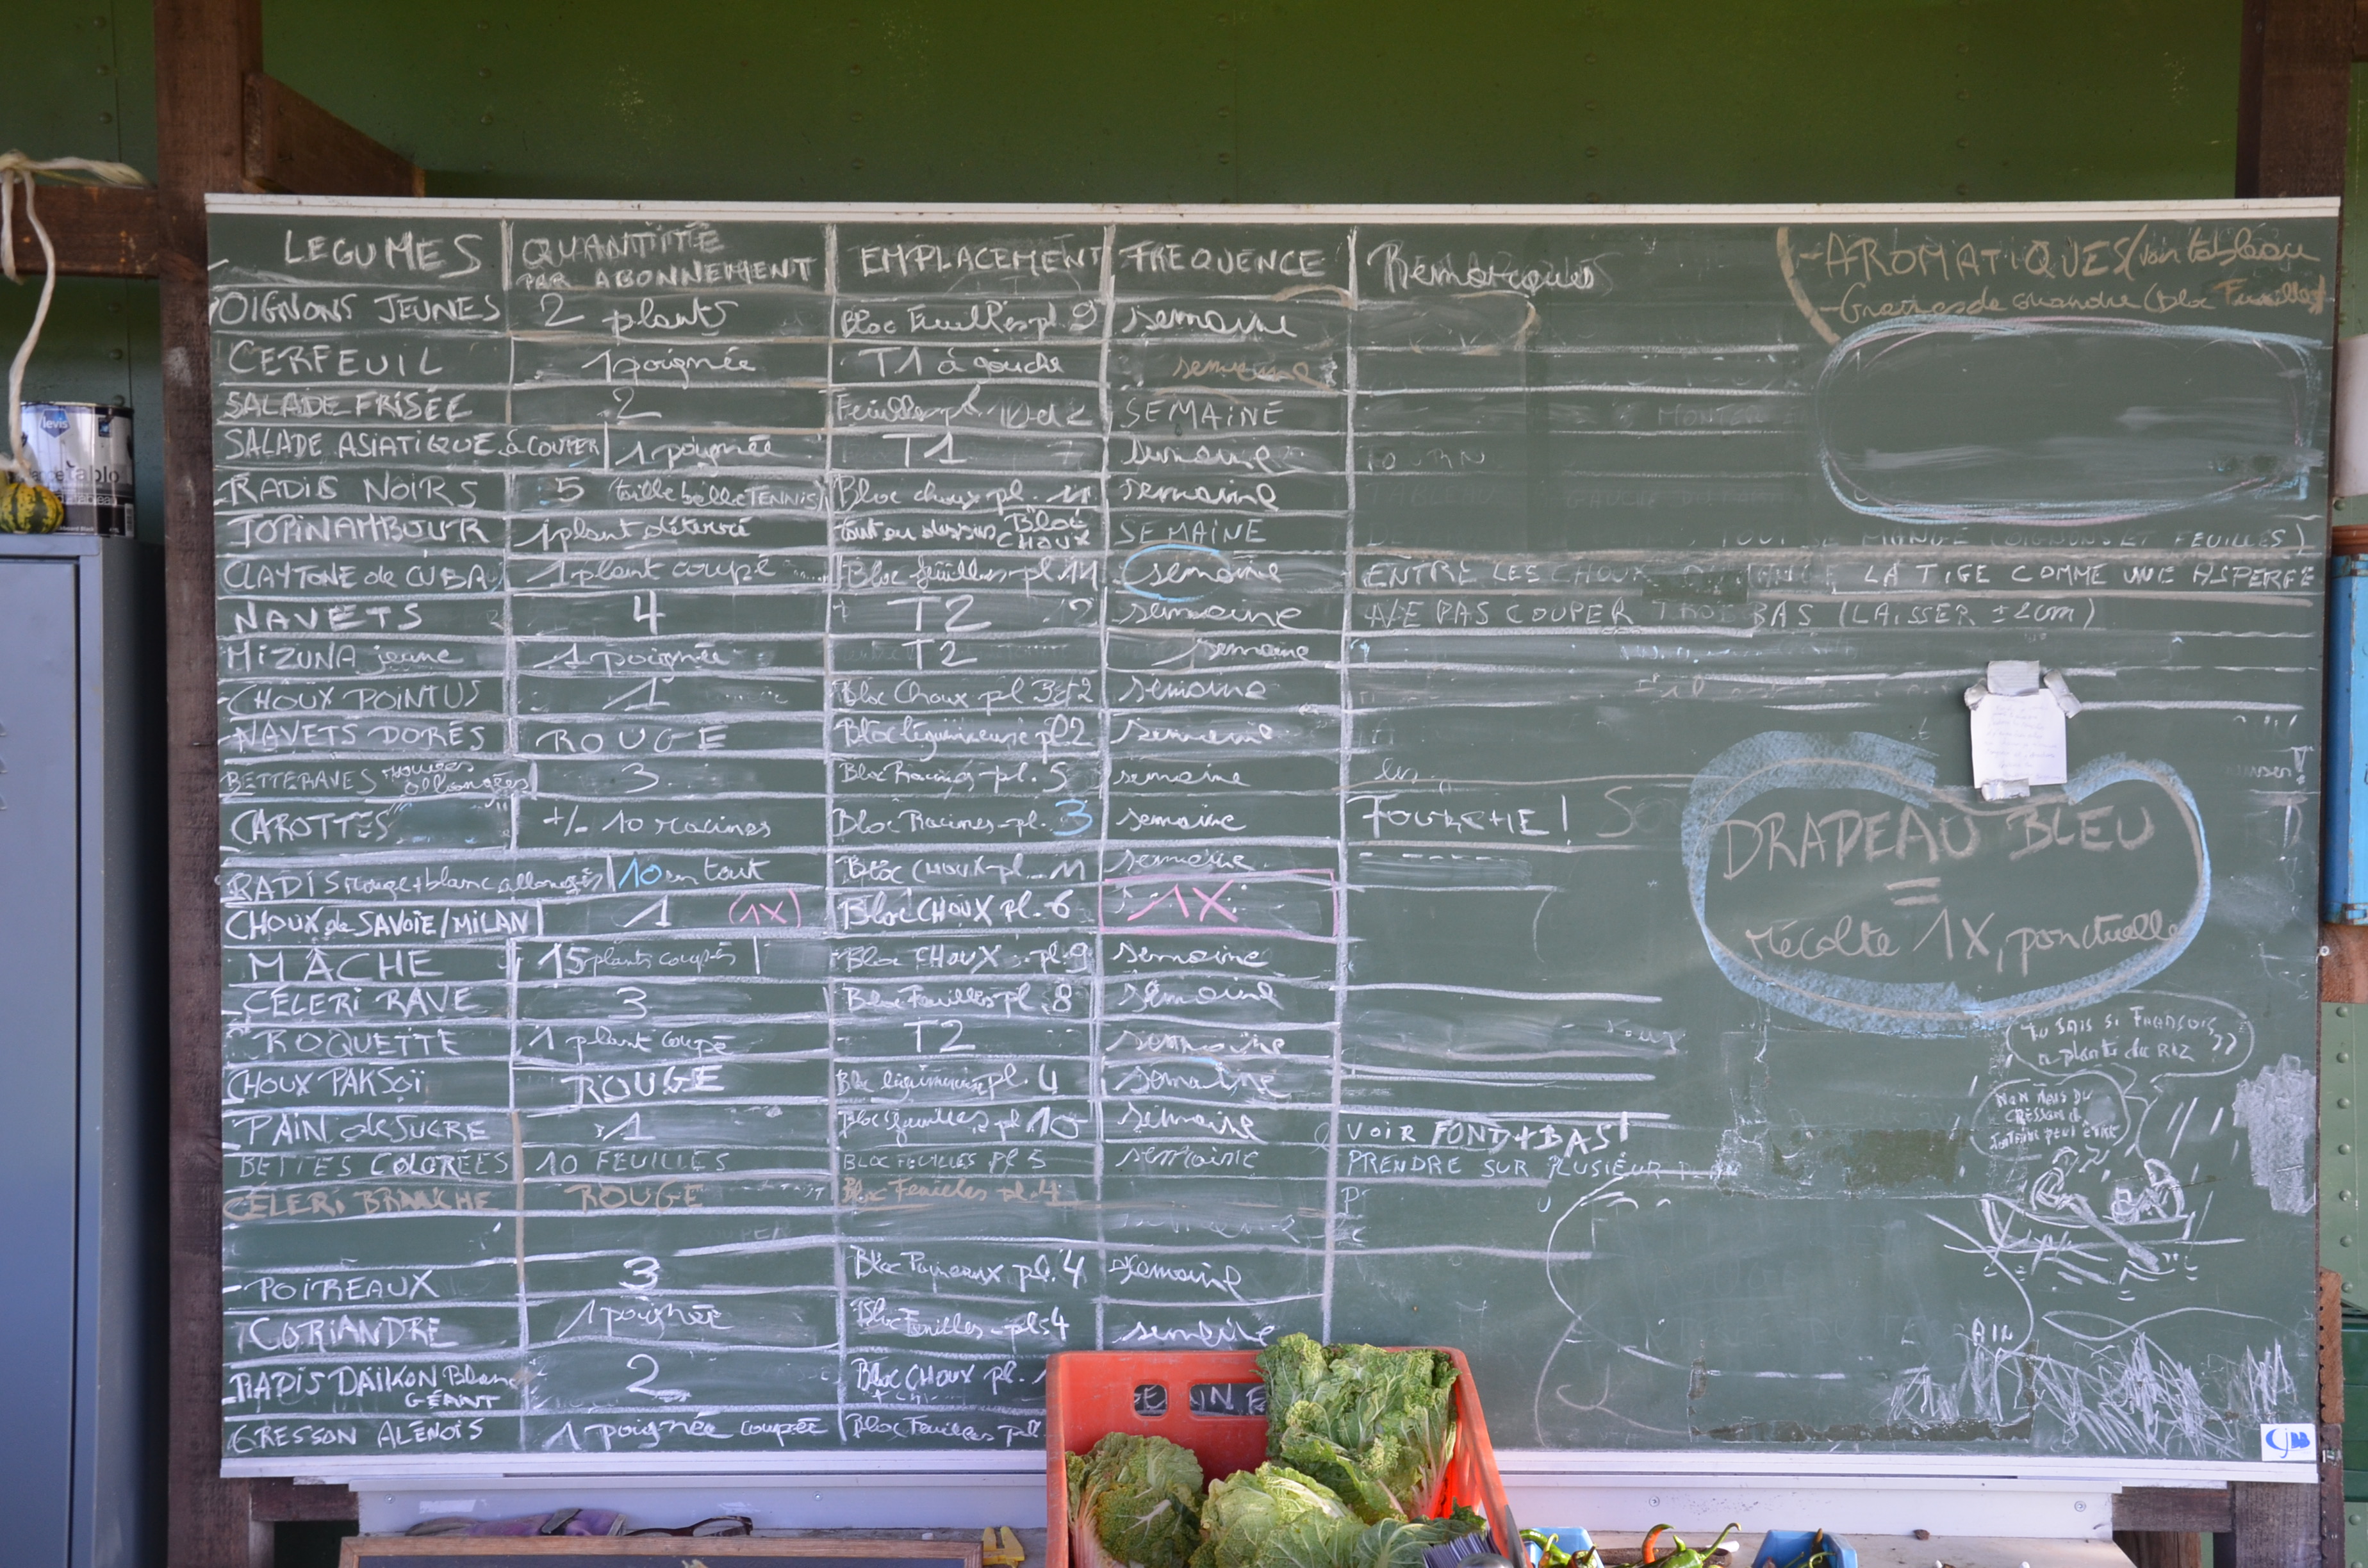 LEGUMES QUANTITÉ PAR ABONNEMENT EMPLACEMENT FREQUENCE Remarques
OIGNONS JEUNES 2 plants Bloc Feuilles pl 9 semaine
CERFEUIL 1 poignée T1 à gauche semaine
SALADE FRISÉE 2 Feuilles pl. 10 et 2 SEMAINE
SALADE ASIATIQUE à COUPER 1 poignée T1 semaine
RADIS NOIRS 5 (taille balle TENNIS) Bloc choux pl. 11 semaine
TOPINAMBOUR 1 plant déterré tout au dessus Bloc CHOUX SEMAINE
MANGE (OIGNONS ET FEUILLES)
CLAYTONE de CUBA 1 plant coupé Bloc feuilles pl 11 semaine ENTRE LES CHOUX LA TIGE COMME UNE ASPERGE
NAVETS 4 T2 semaine NE PAS COUPER TROP BAS (LAISSER ± 2cm)
MIZUNA jeune 1 poignée T2 semaine
CHOUX POINTUS 1 Bloc Choux pl 3 et 2 semaine
NAVETS DORÉS ROUGE Bloc légumineuse pl 2 semaine
BETTERAVES rouges allongées 3 Bloc Racines pl. 5 semaine
CAROTTES +/- 10 racines Bloc Racines pl. 3 semaine FOURCHE!
RADIS rouge + blanc allongés 10 en tout Bloc CHOUX pl. 11 semaine
CHOUX de SAVOIE/MILAN 1 (1X) Bloc CHOUX pl. 6 1X
MÂCHE 15 plants coupés Bloc CHOUX pl. 9 semaine
CÉLERI RAVE 3 Bloc Feuilles pl. 8 semaine
ROQUETTE 1 plant coupé T2 semaine
CHOUX PAKSOÏ ROUGE Bloc légumineuse pl. 4 semaine
PAIN de SUCRE 1 Bloc feuilles pl 10 semaine VOIR FOND + BAS!
BETTES COLORÉES 10 FEUILLES BLOC FEUILLES Pl 5 semaine PRENDRE SUR PLUSIEUR
CÉLERI BRANCHE ROUGE Bloc Feuilles pl. 4
POIREAUX 3 Bloc Poireaux pl. 4 semaine
CORIANDRE 1 poignée Bloc Feuilles pl 4 semaine
RADIS DAIKON Blanc GÉANT 2 Bloc CHOUX pl.
CRESSON ALÉNOIS 1 poignée coupée Bloc Feuilles pl
- AROMATIQUES (voir tableau
- Graines de coriandre (Bloc Feuilles)
DRAPEAU BLEU
=
récolte 1X, ponctuelle
TU SAIS SI FRANÇOIS
a planté du RIZ ??
NON MAIS DU
CRESSON de
FONTAINE peut être
levis
tablo